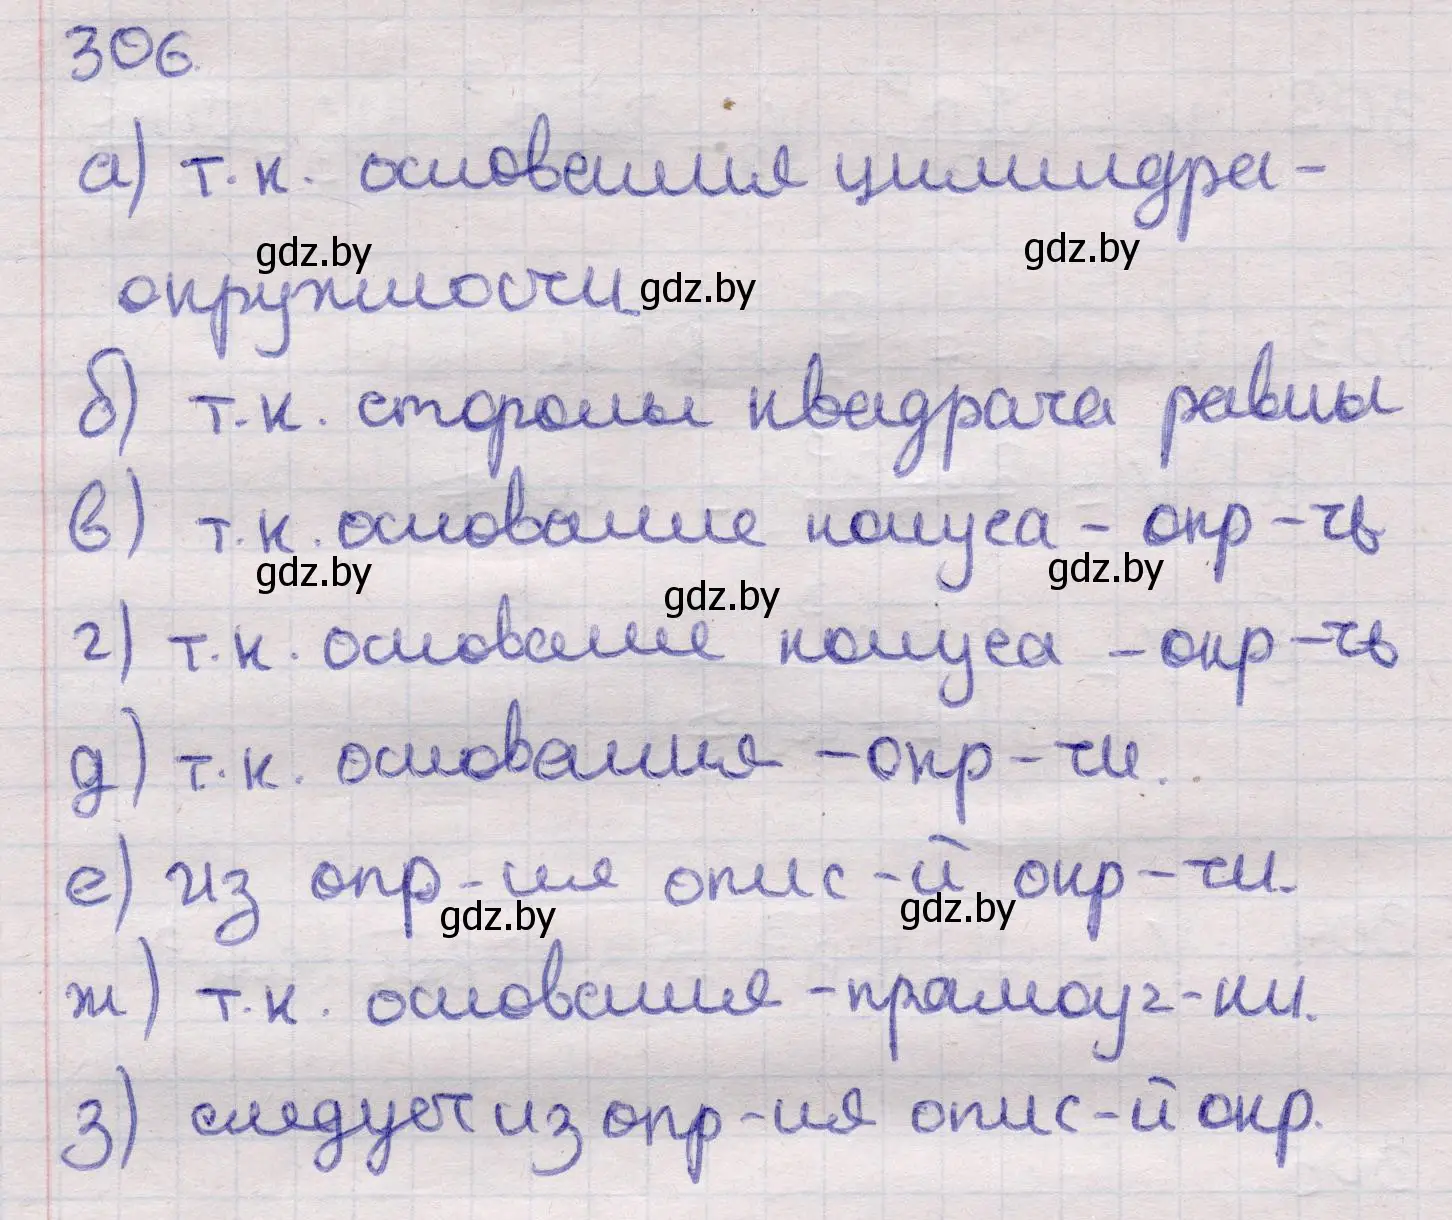 306.
а) т.к. основания цилиндра -
gdz.by gdz.by
окружности gdz.by
б) т.к. стороны квадрата равны
в) т.к. основание конуса - окр-ть
gdz.by gdz.by gdz.by
г) т.к. основание конуса - окр-ть
д) т.к. основания - окр-ти.
е) из опр-ия опис-й окр-ти.
gdz.by gdz.by
ж) т.к. основания - прямоуг-ки.
з) следует из опр-ия опис-й окр.